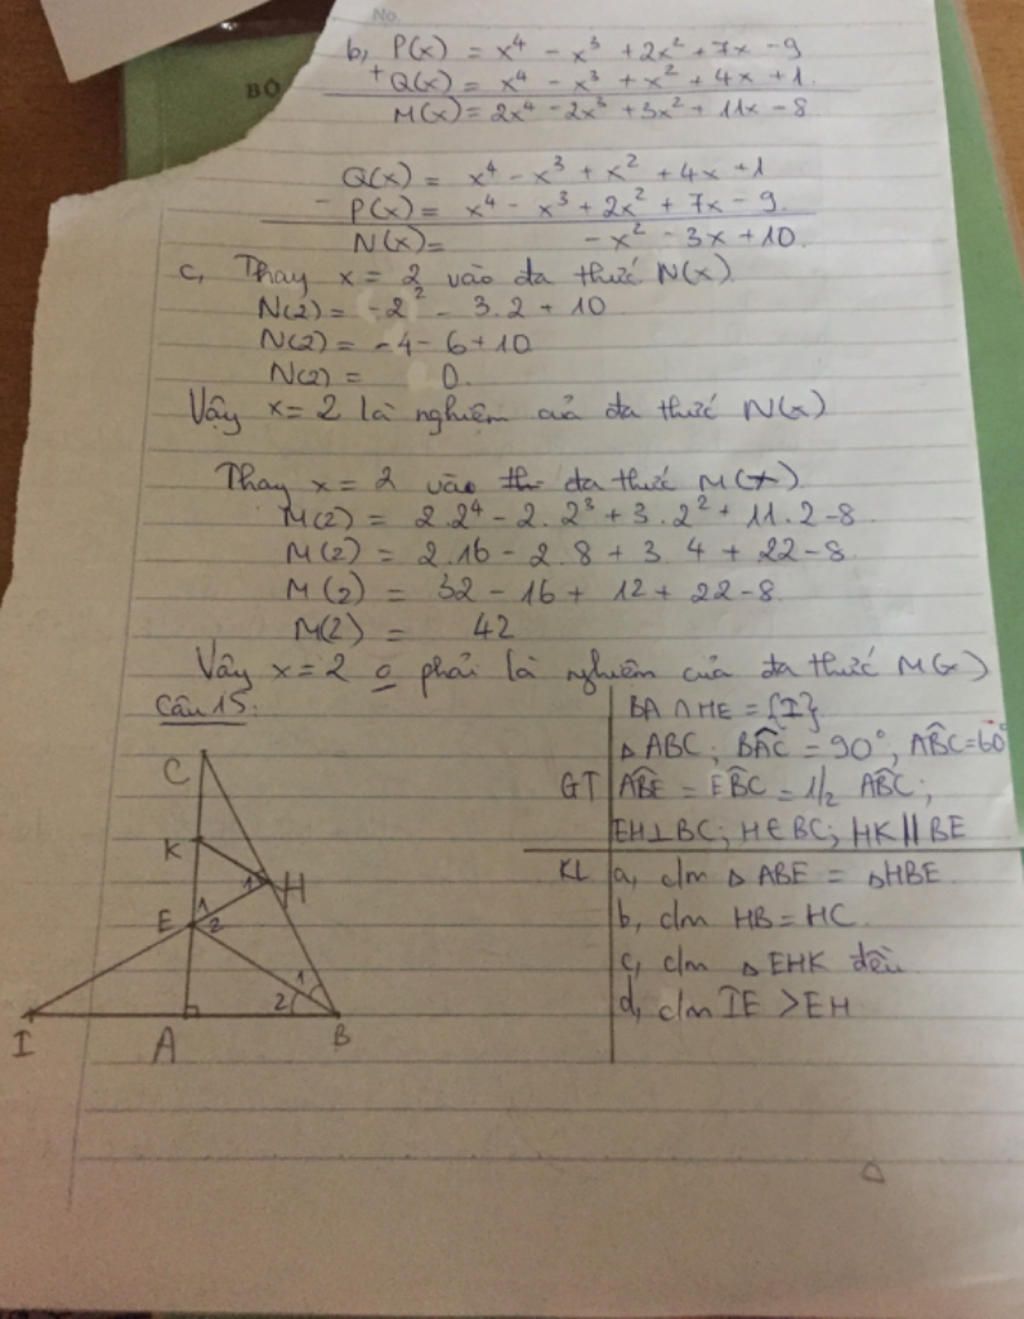 No.
BỘ
b, P(x) = x⁴ - x³ + 2x² + 7x - 9
+ Q(x) = x⁴ - x³ + x² + 4x + 1.
M(x) = 2x⁴ - 2x³ + 3x² + 11x - 8
Q(x) = x⁴ - x³ + x² + 4x + 1
- P(x) = x⁴ - x³ + 2x² + 7x - 9.
N(x) = - x² - 3x + 10.
c, Thay x = 2 vào đa thức N(x)
N(2) = -2² - 3.2 + 10
N(2) = -4 - 6 + 10
N(2) = 0.
Vậy x = 2 là nghiệm của đa thức N(x)
Thay x = 2 vào th đa thức M(x)
M(2) = 2.2⁴ - 2.2³ + 3.2² + 11.2 - 8
M(2) = 2.16 - 2.8 + 3.4 + 22 - 8
M(2) = 32 - 16 + 12 + 22 - 8
M(2) = 42
Vậy x = 2 o phải là nghiệm của đa thức M(x)
Câu 15:
BA ∩ HE = {I}
△ABC; BÂC = 90°, AB̂C = 60°
GT AB̂E = EB̂C = 1/2 AB̂C;
EH⊥BC; H∈BC; HK//BE
KL a, c/m △ABE = △HBE
b, c/m HB = HC
c, c/m △EHK đều
d, c/m IE > EH
C
K
1 H
E 1
2
1
2
I A B